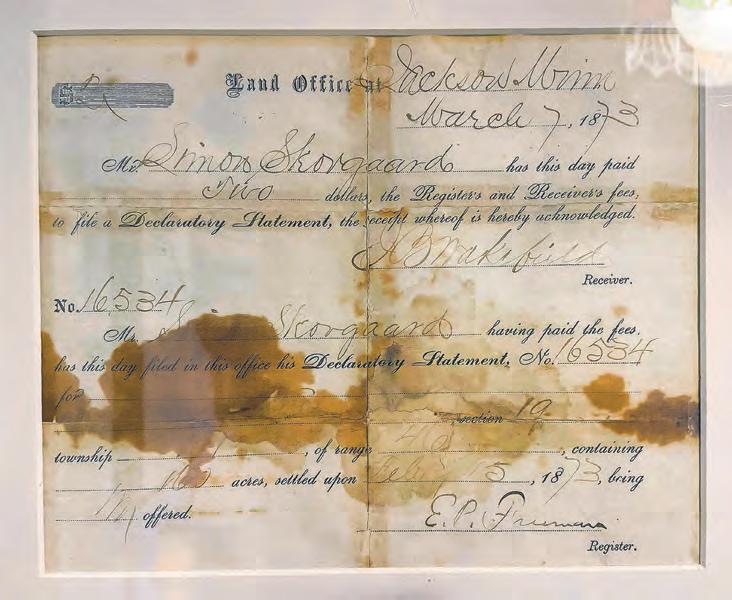 Land Office at Jackson Minn
March 7, 1873
Mr. Simon Skovgaard has this day paid
Two dollars, the Register's and Receiver's fees,
to file a Declaratory Statement, the receipt whereof is hereby acknowledged.
J B Wakefield
Receiver.
No. 16534
Mr. Skovgaard having paid the fees,
has this day filed in this office his Declaratory Statement, No. 16534
for
, section 19
township , of range 40 , containing
160 acres, settled upon Feby 15, 1873, being
offered.
E. P. Freeman
Register.